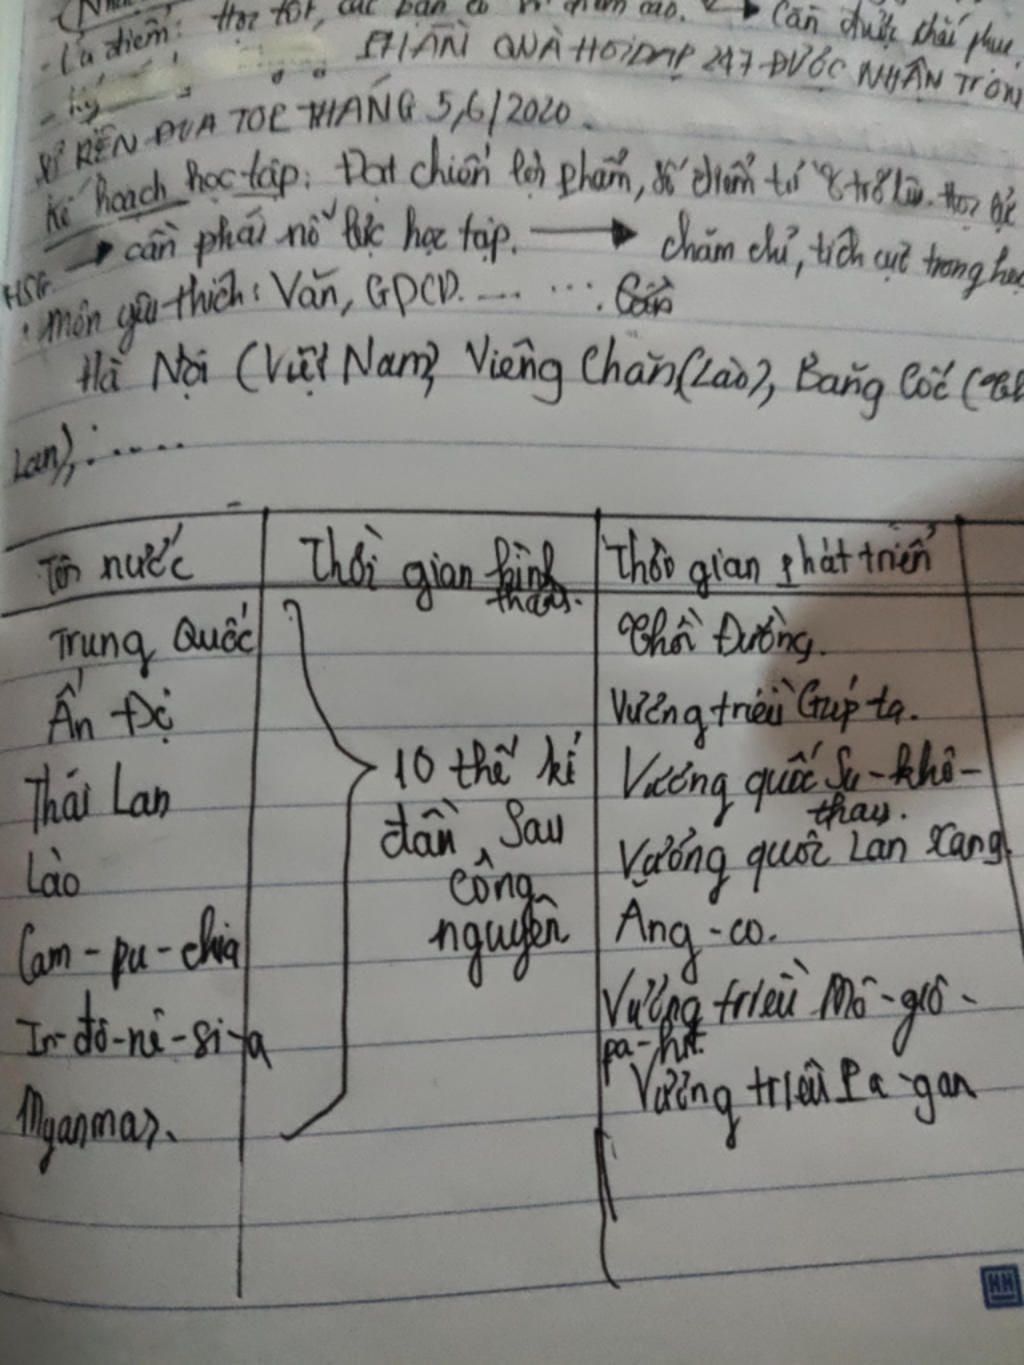 - Ưu điểm: Học tốt, các bạn có → Cần được
PHẦN QUÀ HOIDAP 247 ĐƯỢC NHẬN TRONG
ĐUA TOP THÁNG 5,6/2020.
Kế hoạch học tập: Đạt chiến lợi phẩm, số điểm từ 8 trở lên.
→ cần phải nỗ lực học tập. → chăm chỉ, tích cực trong học
HSG
môn yêu thích: Văn, GDCD. ... ....
Hà Nội (Việt Nam), Viêng Chăn (Lào), Băng Cốc (Thái
Lan),.....
Tên nước | Thời gian hình thành. | Thời gian phát triển
Trung Quốc | 10 thế kỉ đần sau công nguyên | Thời Đường.
Ấn Độ | Vương triều Gúp ta.
Thái Lan | Vương quốc Su-khô-thay.
Lào | Vương quốc Lan Xang.
Cam-pu-chia | Ăng-co.
In-đô-nê-si-a | Vương triều Mô-giô-pa-hit.
Myanmar. | Vương triều Pa-gan
HH